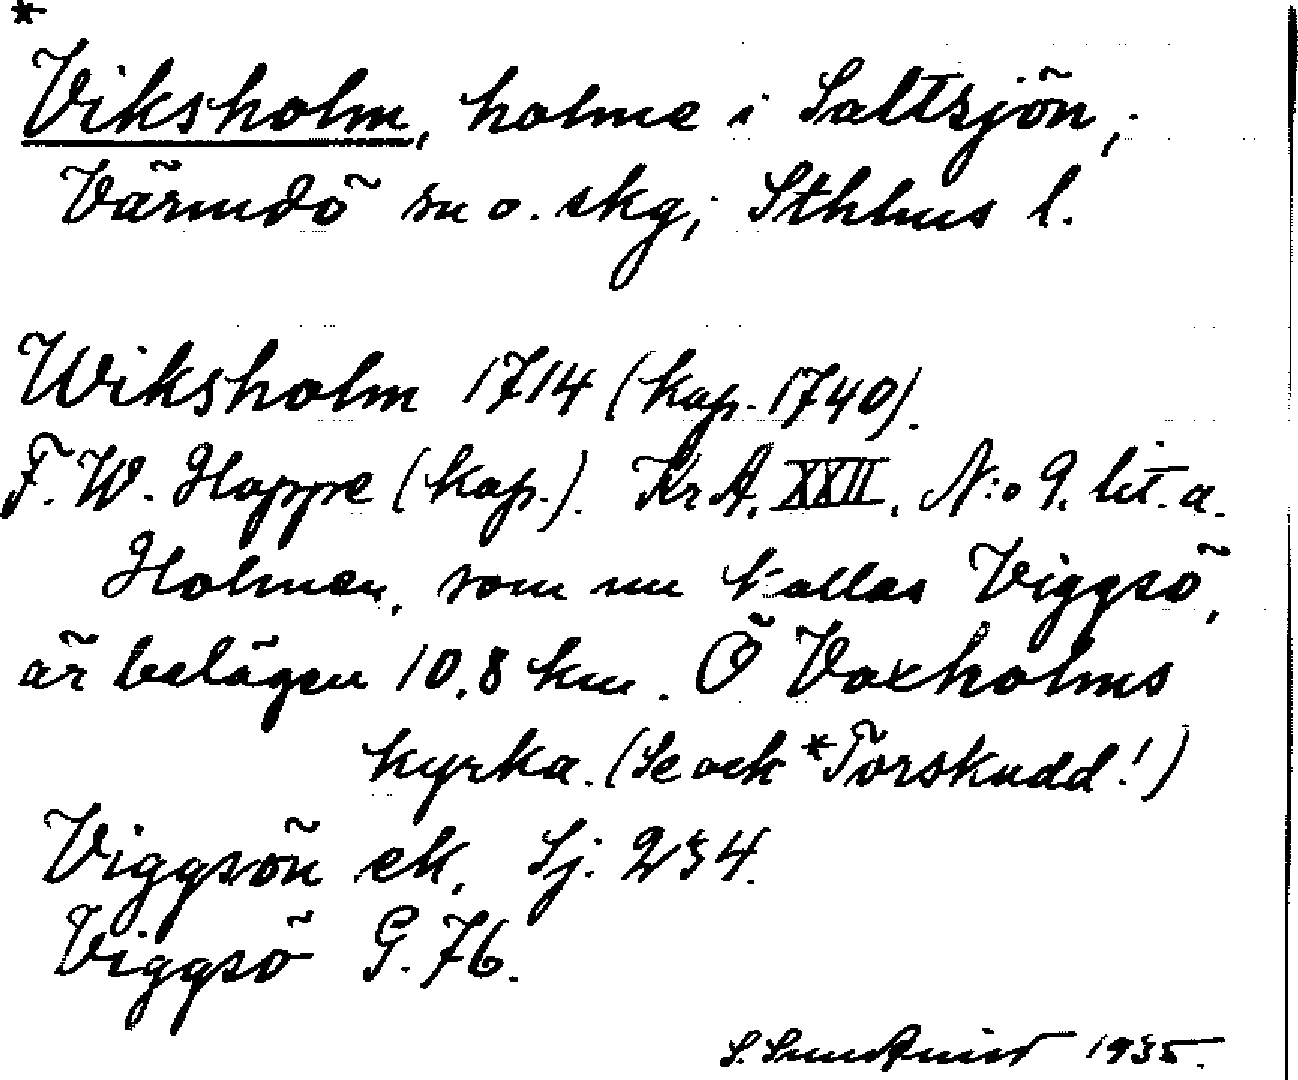 *
Viksholm, holme i Saltsjön,
Värmdö sn o. skg, Sthlms l.
Wiksholm 1714 (kap. 1740).
F. W. Hoppe (kap.). Kr A. XXII. N:o 9. lit. a.
Holmen, som nu kallas Viggsö,
är belägen 10,8 km. Ö Vaxholms
kyrka. (Se ock *Torskudd!)
Viggsön ek. Sj. 234.
Viggsö G. 76.
S. Sundquist 1935.